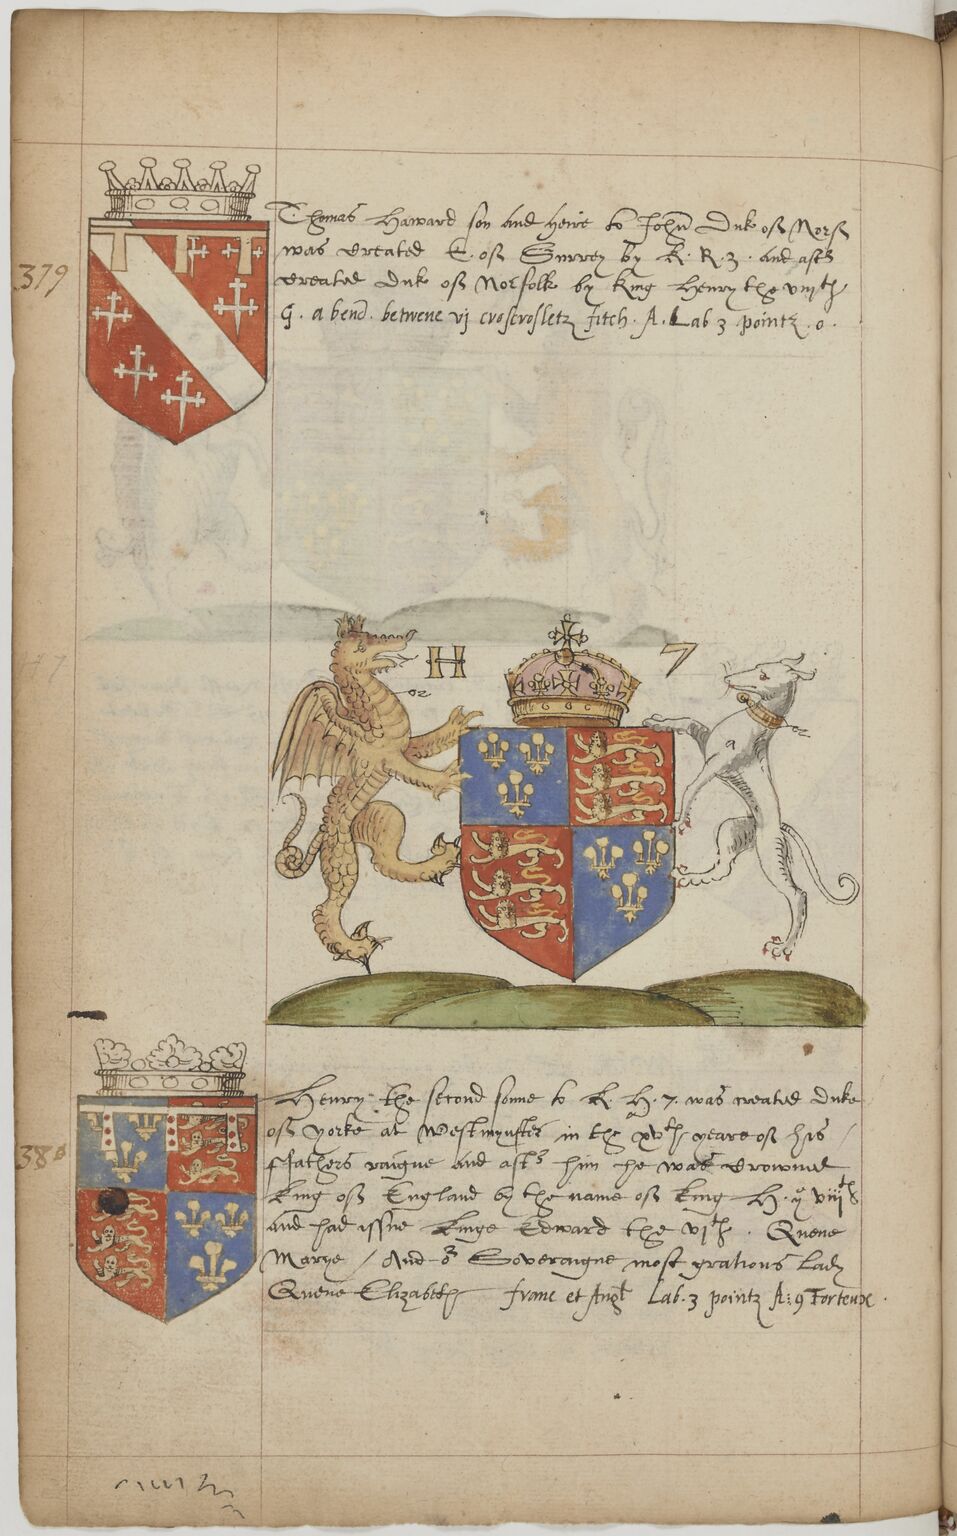 379
Thomas Haward son and heire to John Duke off Norff
was created E. off Surrey by K. R. 3. and aft
created Duke off Norfolk by King Henry the viijth
G. a bend. betwene vj croscrosletz fitch. A. Lab 3 pointz. o.
H 7
or
or
a
Henry the second sonne to K. H. 7. was created Duke
off yorke at Westmynster in the xvth yeare off his
ffathers raigne and aft him he was crowned
King off England by the name off King H. ye viijth
and had issue Kinge Edward the vjth. Quene
Marye / And or Soveraigne most gratious Lady
Quene Elizabeth franc et Angl Lab. 3 pointz A: 9 Torteux.